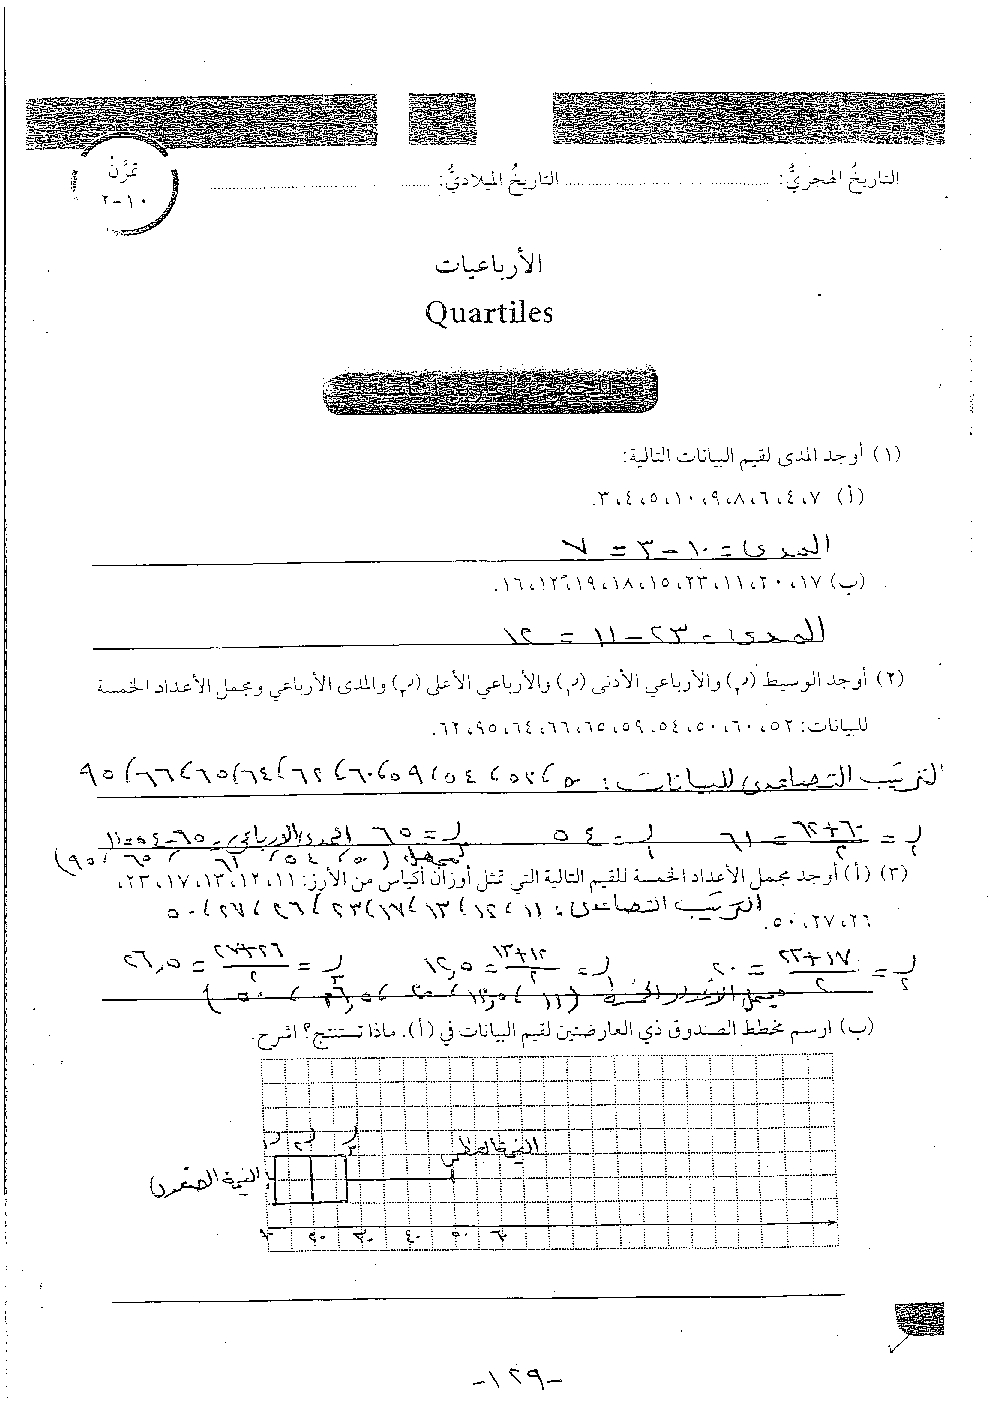 تمرَّنْ
١٠-٢
التاريخُ الهجريُّ: التاريخُ الميلاديُّ:
الأرباعيات
Quartiles
(١) أوجد المدى لقيم البيانات التالية:
(أ) ٧، ٤، ٦، ٨، ٩، ١٠، ٥، ٤، ٣.
المدى = ١٠ - ٣ = ٧
(ب) ١٧، ٢٠، ١١، ٢٣، ١٥، ١٨، ١٩، ١٢، ١٦.
المدى = ٢٣ - ١١ = ١٢
(٢) أوجد الوسيط (ر٢) والأرباعي الأدنى (ر١) والأرباعي الأعلى (ر٣) والمدى الأرباعي ومجمل الأعداد الخمسة
للبيانات: ٥٢، ٦٠، ٥٠، ٥٤، ٥٩، ٦٥، ٦٦، ٦٤، ٩٥، ٦٢.
الترتيب التصاعدي للبيانات: ٥٠، ٥٢، ٥٤، ٥٩، ٦٠، ٦٢، ٦٤، ٦٥، ٦٦، ٩٥
ر٢ = (٦٠+٦٢)/٢ = ٦١ ر١ = ٥٤ ر٣ = ٦٥ المدى الأرباعي = ٦٥ - ٥٤ = ١١
مجمل (٥٠، ٥٤، ٦١، ٦٥، ٩٥)
(٣) (أ) أوجد مجمل الأعداد الخمسة للقيم التالية التي تمثل أوزان أكياس من الأرز: ١١، ١٢، ١٣، ١٧، ٢٣،
٢٦، ٢٧، ٥٠.
الترتيب التصاعدي: ١١، ١٢، ١٣، ١٧، ٢٣، ٢٦، ٢٧، ٥٠
ر٢ = (١٧+٢٣)/٢ = ٢٠ ر١ = (١٢+١٣)/٢ = ١٢,٥ ر٣ = (٢٦+٢٧)/٢ = ٢٦,٥
مجمل الأعداد الخمسة (١١، ١٢,٥، ٢٠، ٢٦,٥، ٥٠)
(ب) ارسم مخطط الصندوق ذي العارضتين لقيم البيانات في (أ). ماذا تستنتج؟ اشرح.
ر١ ر٢ ر٣ القيمة العظمى
القيمة الصغرى
١٠ ٢٠ ٣٠ ٤٠ ٥٠ ٦٠
-١٢٩-